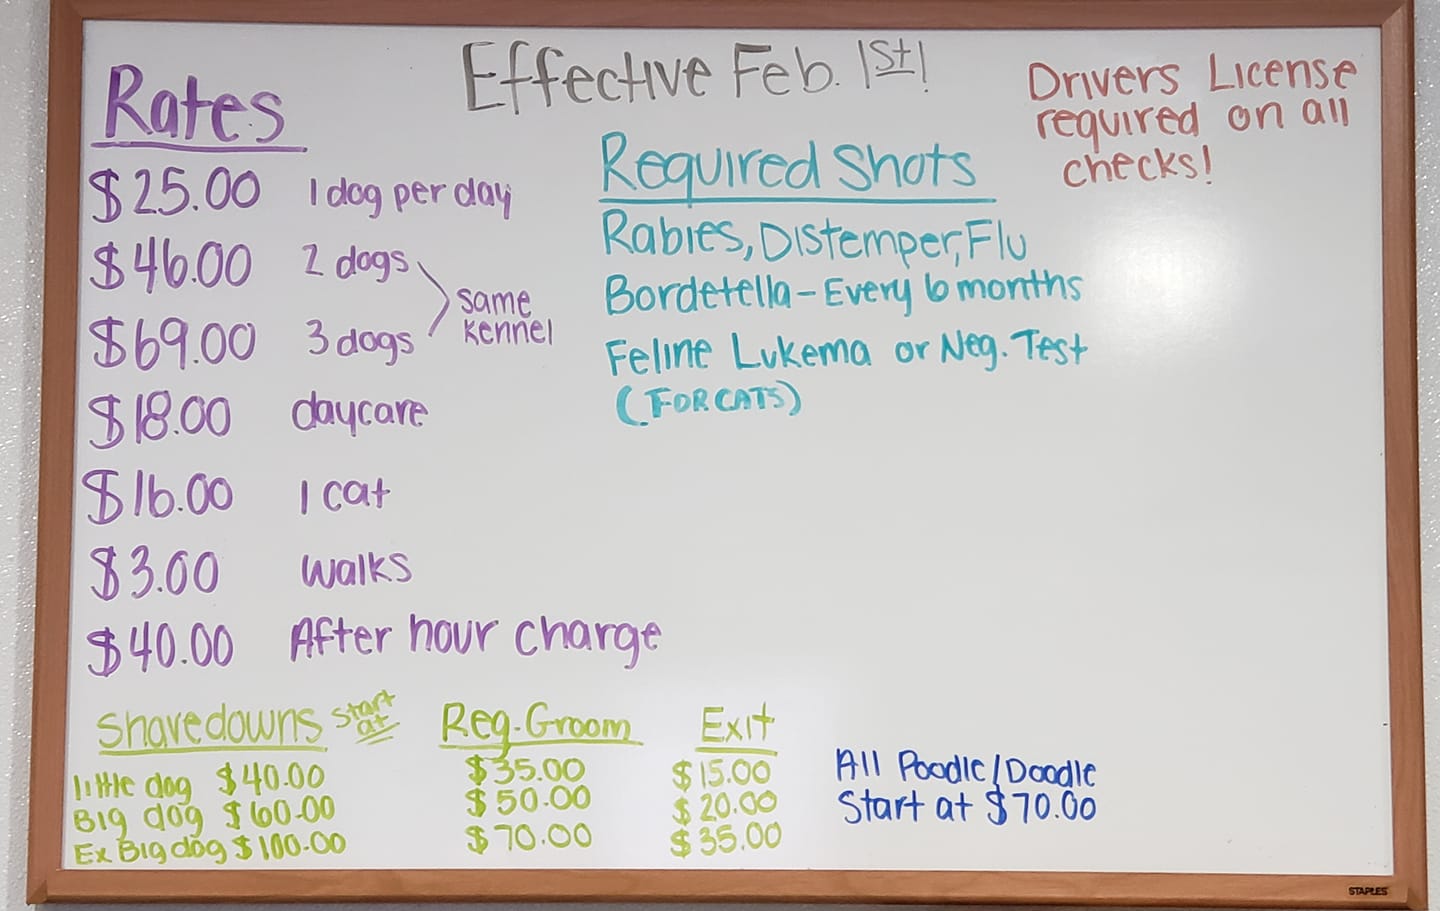 Effective Feb. 1st!
Rates
$25.00 1 dog per day
$46.00 2 dogs
$69.00 3 dogs
same
kennel
$18.00 daycare
$16.00 1 cat
$3.00 walks
$40.00 After hour charge
Required Shots
Rabies, Distemper, Flu
Bordetella - Every 6 months
Feline Lukema or Neg. Test
(FOR CATS)
Drivers License
required on all
checks!
Shavedowns start at Reg. Groom Exit
little dog $40.00 $35.00 $15.00
Big dog $60.00 $50.00 $20.00
Ex Big dog $100.00 $70.00 $35.00
All Poodle/Doodle
Start at $70.00
STAPLES